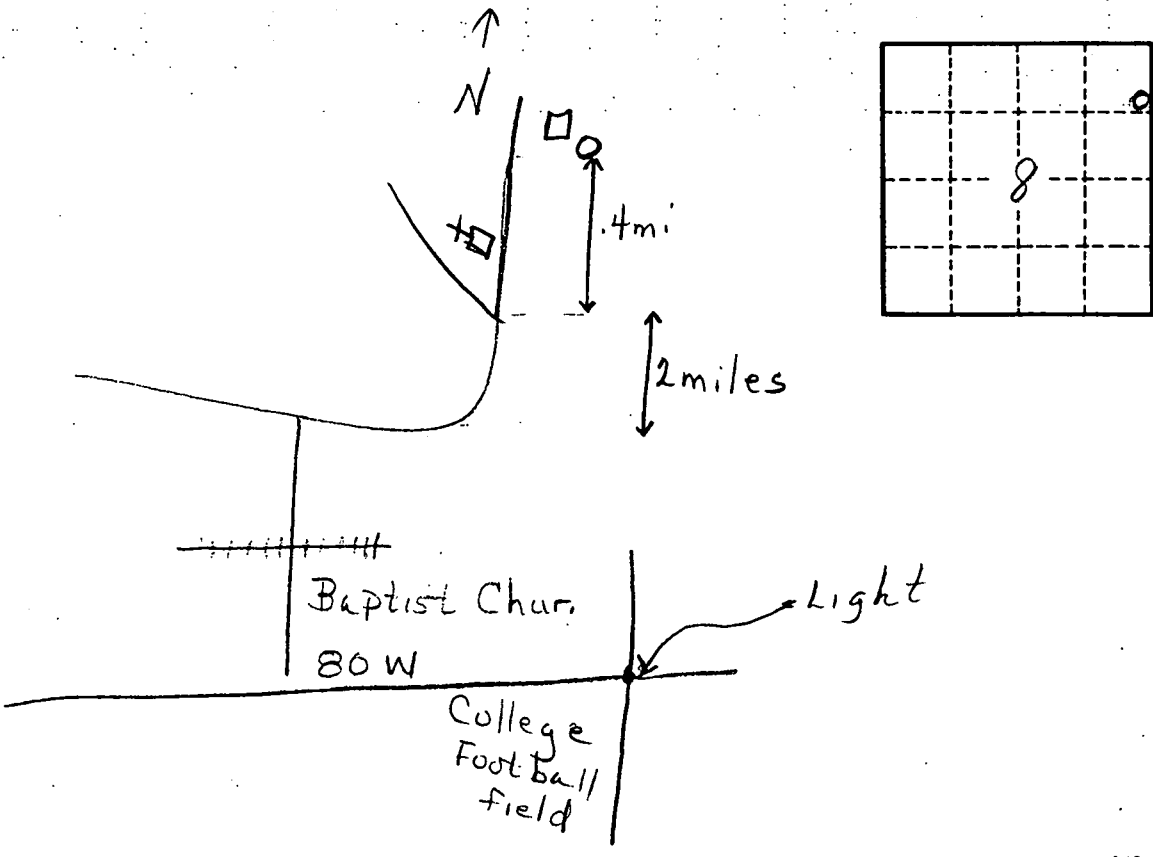 N
8
.4mi
2miles
Baptist Chur.
Light
80 W
College
Football
field